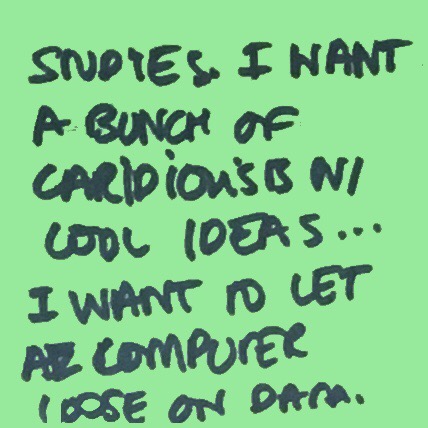 STUDIES. I WANT
A BUNCH OF
W/
COOL IDEAS...
I WANT TO LET
A COMPUTER
LOOSE ON DATA.